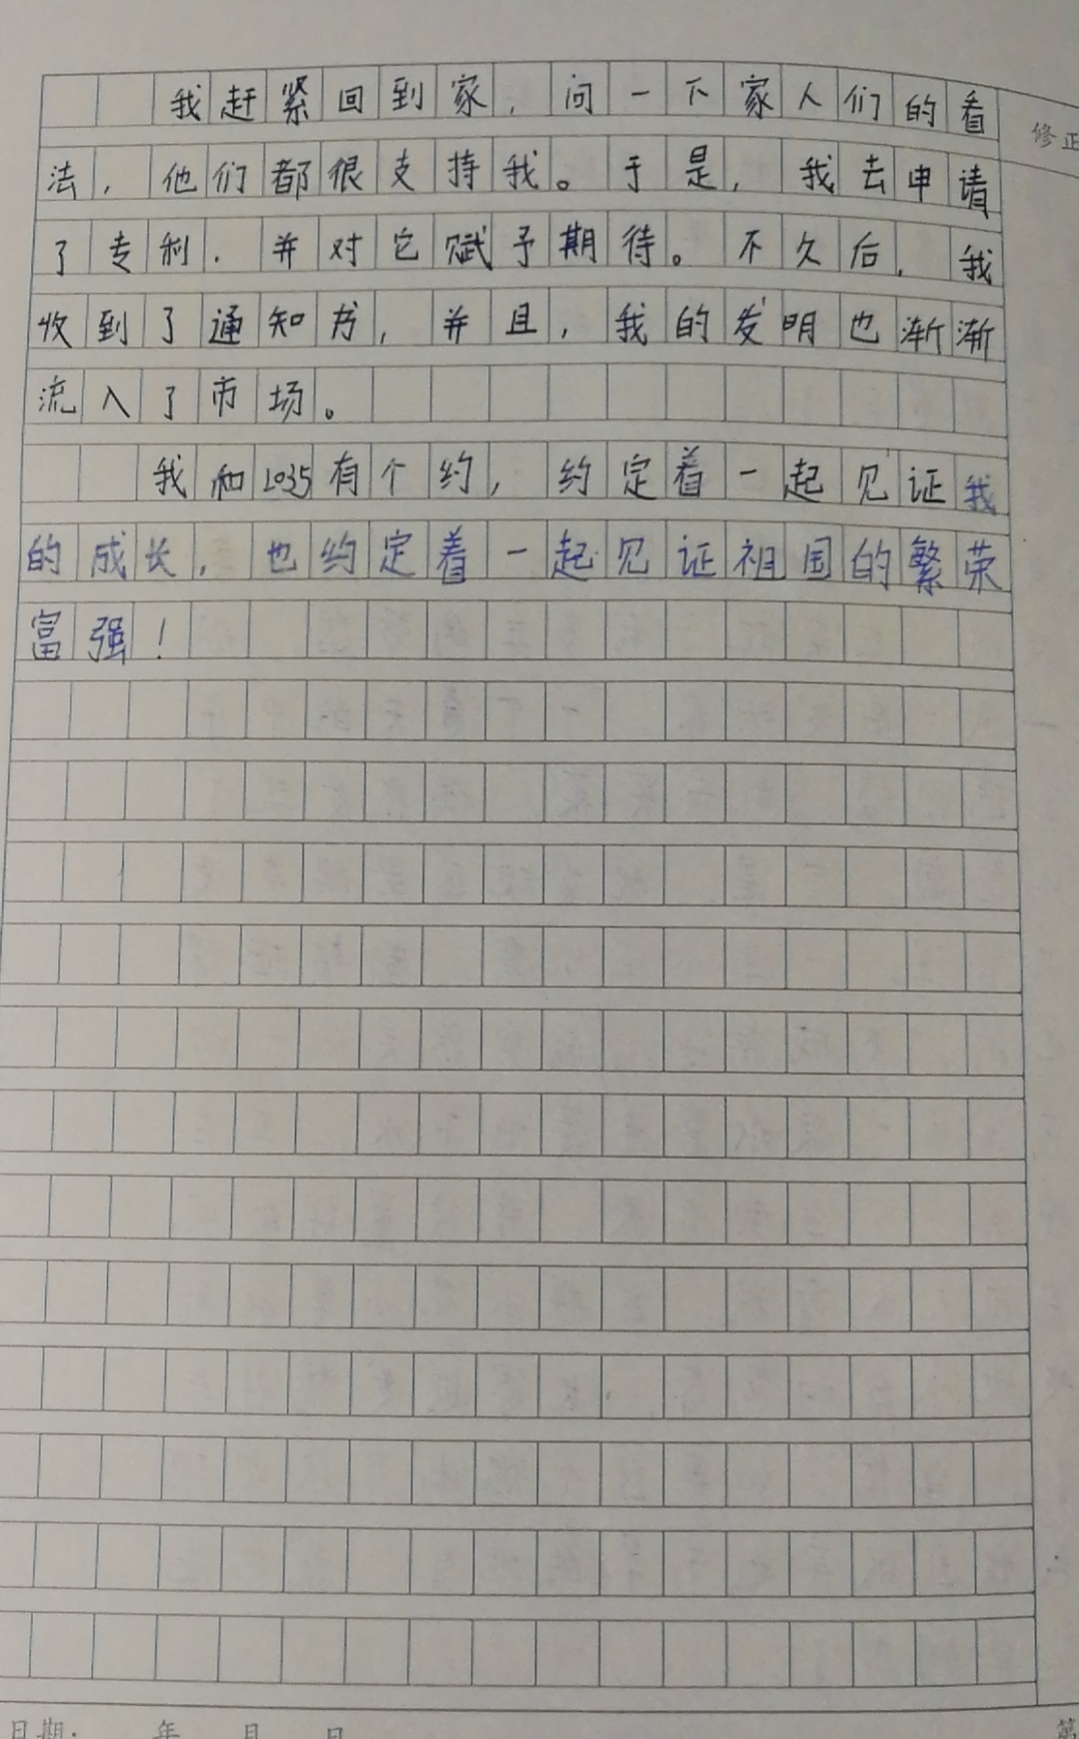 我赶紧回到家，问一下家人们的看
修正
法，他们都很支持我。于是，我去申请
了专利，并对它赋予期待。不久后，我
收到了通知书，并且，我的发明也渐渐
流入了市场。
我和2035有个约，约定着一起见证我
的成长，也约定着一起见证祖国的繁荣
富强！
日期： 年 月 日
第